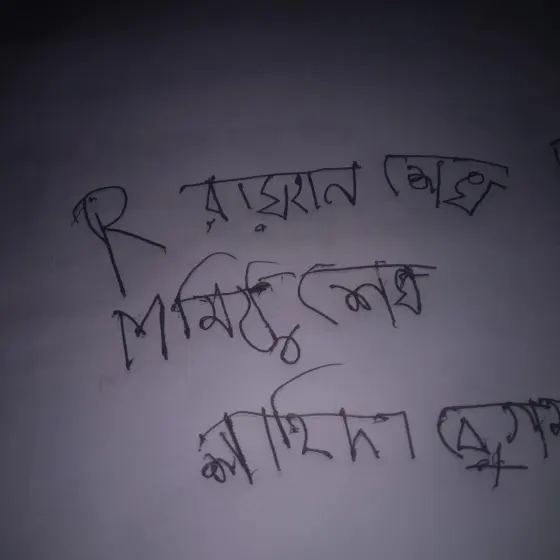 R রায়হান শেখ
M মিঠু শেখ
শাহিদা বেগম